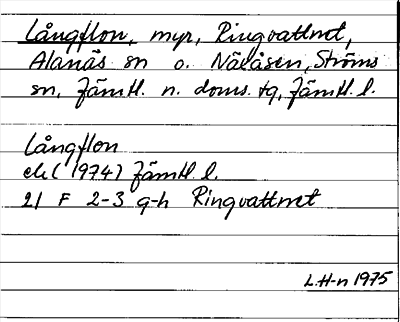 Långflon, myr, Ringvattnet,
Alanäs sn o. Näråsen, Ströms
sn, Jämtl. n. doms. tg, Jämtl. l.
Långflon
ek (1974) Jämtl. l.
21 F 2-3 g-h Ringvattnet
L.H-n 1975